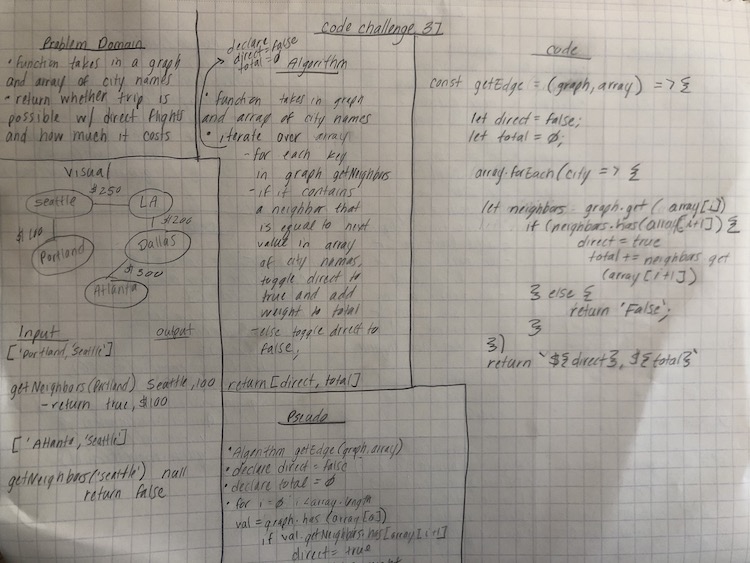 Code challenge 37
Problem Domain
• function takes in a graph
and array of city names
• return whether trip is
possible w/ direct flights
and how much it costs
Visual
Seattle
$250
LA
$200
Dallas
$500
Atlanta
$100
Portland
Input
output
['Portland, 'Seattle']
getNeighbors(Portland) Seattle, 100
- return true, $100
['Atlanta, 'Seattle']
getNeighbors('seattle') null
return false
declare
direct = false
total = 0
Algorithm
• function takes in graph
and array of city names
• iterate over array
- for each key
in graph getNeighbors
- if it contains
a neighbor that
is equal to next
value in array
of city names,
toggle direct to
true and add
weight to total
- else toggle direct to
false;
return [direct, total]
Pseudo
• Algorithm getEdge(graph, array)
• declare direct = false
• declare total = 0
• for i = 0 i < array.length
val = graph.has (array[i])
if val.getNeighbors.has[array[i+1]
direct = true
code
const getEdge = (graph, array) => {
let direct = false;
let total = 0;
array.forEach(city => {
let neighbors graph.get ( array[i])
if (neighbors.has(array[i+1]) {
direct = true
total += neighbors get
(array[i+1])
} else {
return 'False';
}
})
return `${direct}, ${total}`